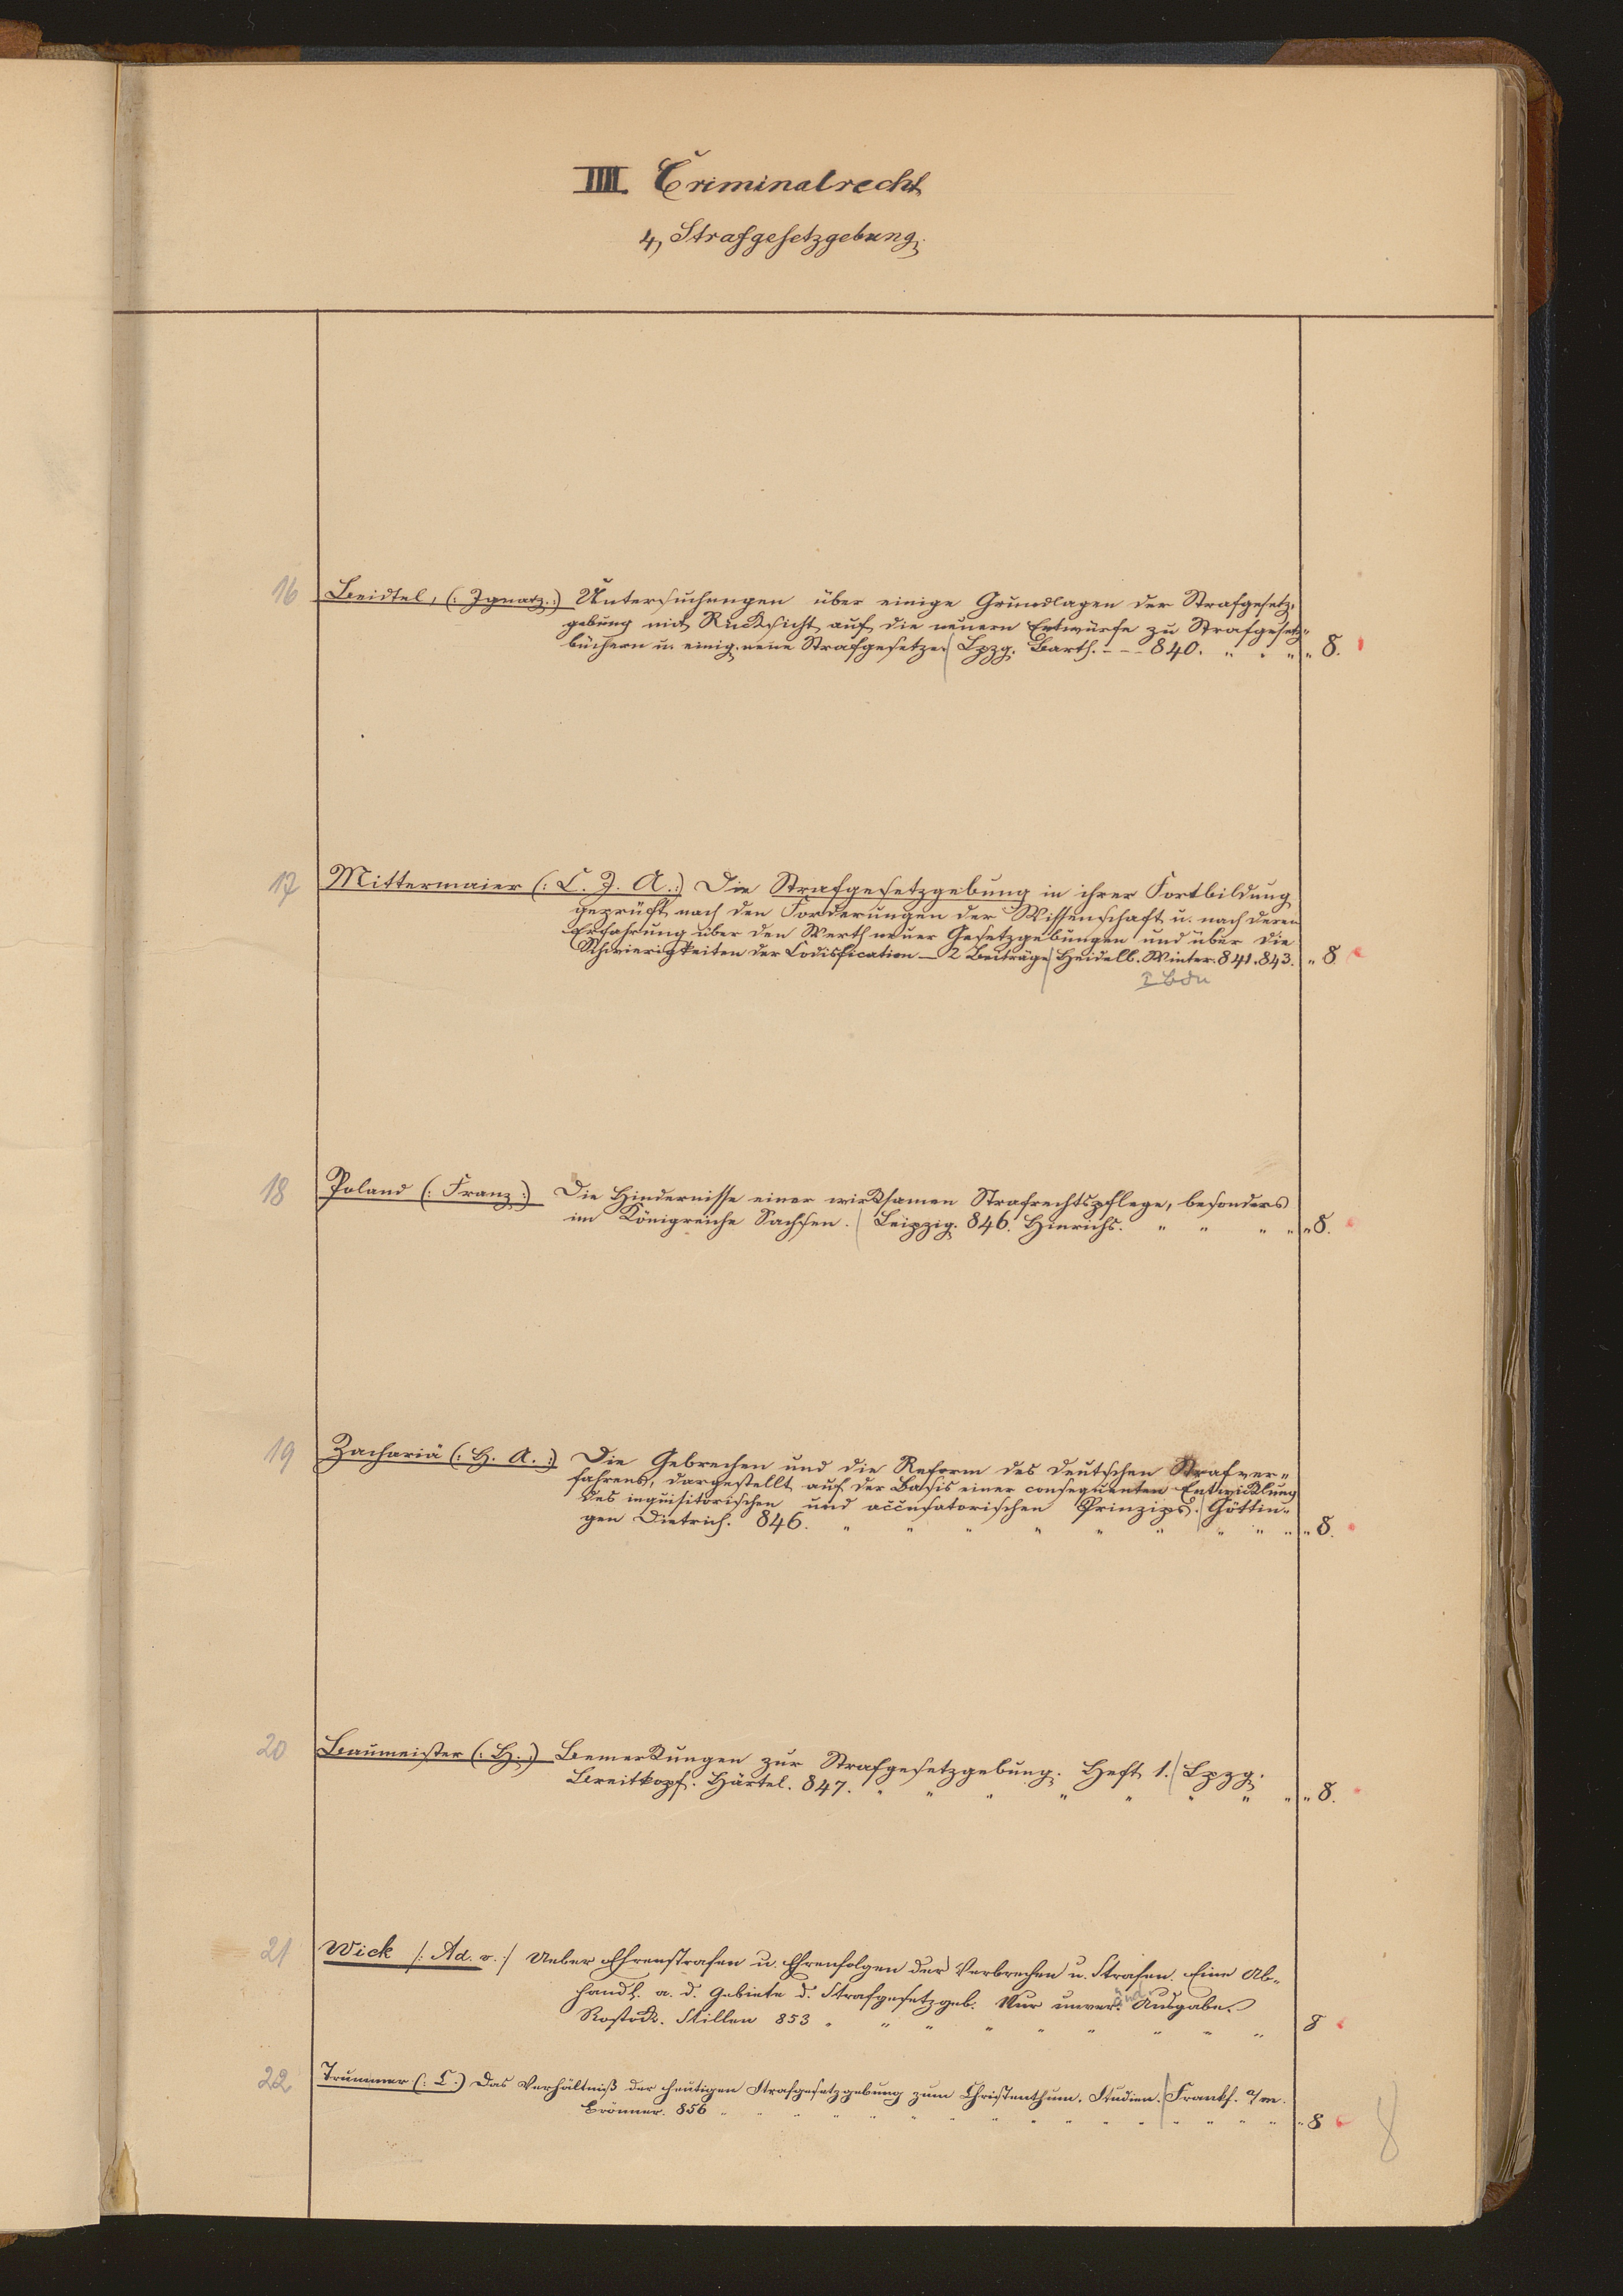 IIII. Criminalrecht
4, Strafgesetzgebung.
16 Beidtel, (: Ignatz :) Untersuchungen über einige Grundlagen der Strafgesetz-
gebung mit Rücksicht auf die neuern Entwürfe zu Strafgesetz-
büchern u. einig. neue Strafgesetze. Lpzg. Barth. - - - 840. " . " " 8.
17 Mittermaier (: C. J. A. :) Die Strafgesetzgebung in ihrer Fortbildung
geprüft nach den Forderungen der Wissenschaft u. nach deren
Erfahrung über den Werth neuer Gesetzgebungen und über die
Schwierigkeiten der Codification — 2 Beiträge Heidelb. Winter. 841. 843. " 8
Bdn
18 Poland (: Franz :) Die Hindernisse einer wirksamen Strafrechtspflege, besonders
im Königreiche Sachsen. Leipzig. 846. Hinrichs. " " " " " 8.
19 Zachariä (: H. A. :) Die Gebrechen und die Reform des deutschen Strafver-
fahrens, dargestellt auf der Basis einer consequenten Entwicklung
des inquisitorischen und accusatorischen Prinzips. Göttin-
gen Dietrich. 846. " " " " " " " " " " 8.
20 Baumeister (: H. :) Bemerkungen zur Strafgesetzgebung. Heft 1. Lpzg.
Breitkopf. Härtel. 847. " " " " " " " " " 8.
21 Wick /: Ad. v. :/ Ueber Ehrenstrafen u. Ehrenfolgen der Verbrechen u. Strafen. Eine Ab-
handl. a. d. Gebiete d. Strafgesetzgeb. Nur unveränd. Ausgabe.
Rostock. Stiller 853 " " " " " " " " " 8
22 Trummer (: C. :) Das Verhältniß der heutigen Strafgesetzgebung zum Christenthum. Studien. Frankf. a/m.
Brönner. 856 " " " " " " " " " " " " " " " 8
8